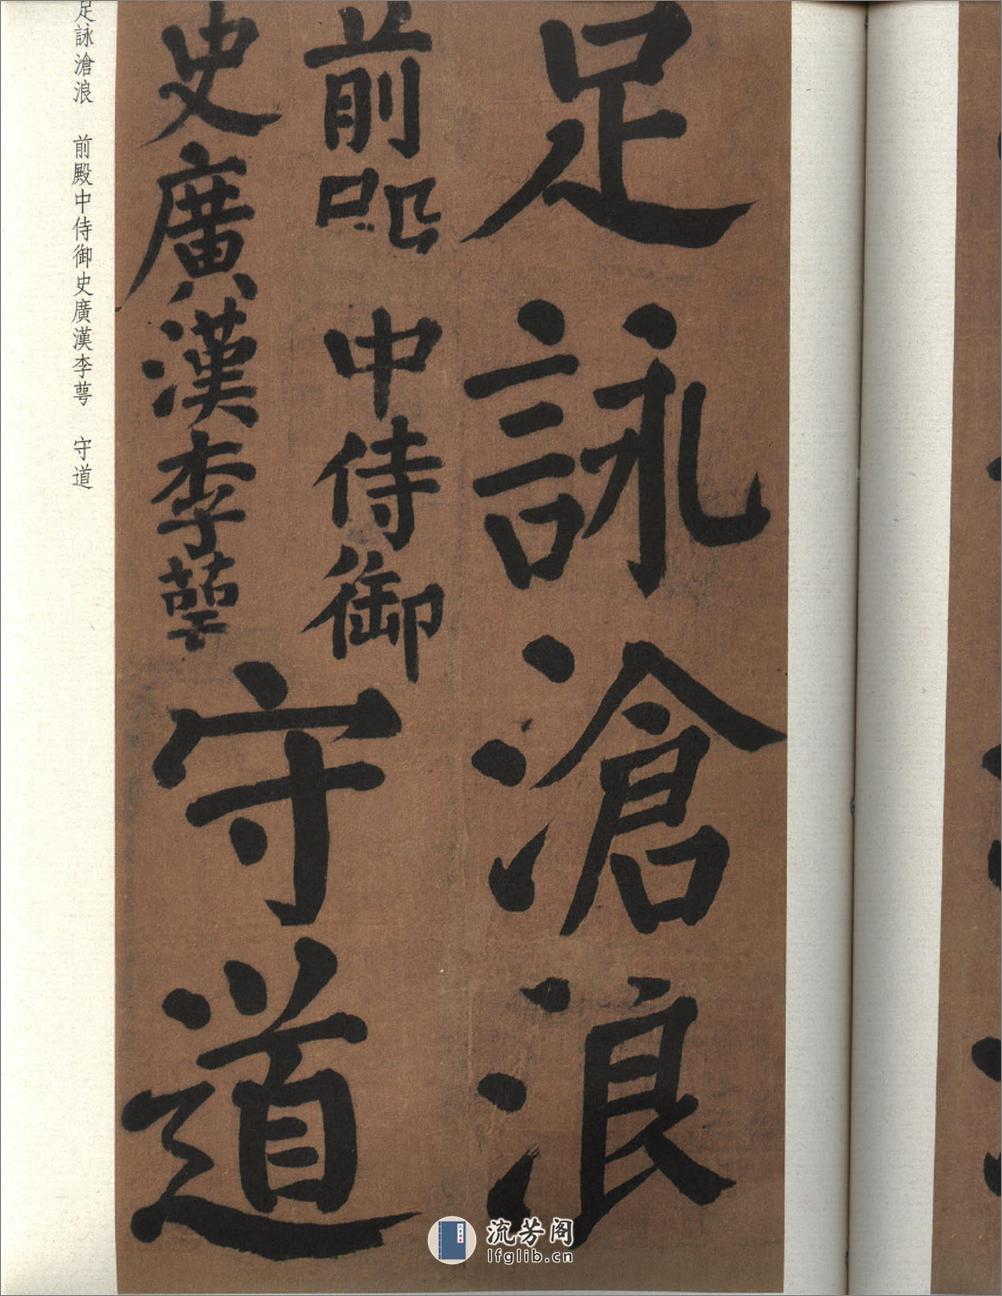 足詠滄浪
前
中侍御
史廣漢李萼
守道
足詠滄浪　前殿中侍御史廣漢李萼　守道
流芳阁
lfglib.cn